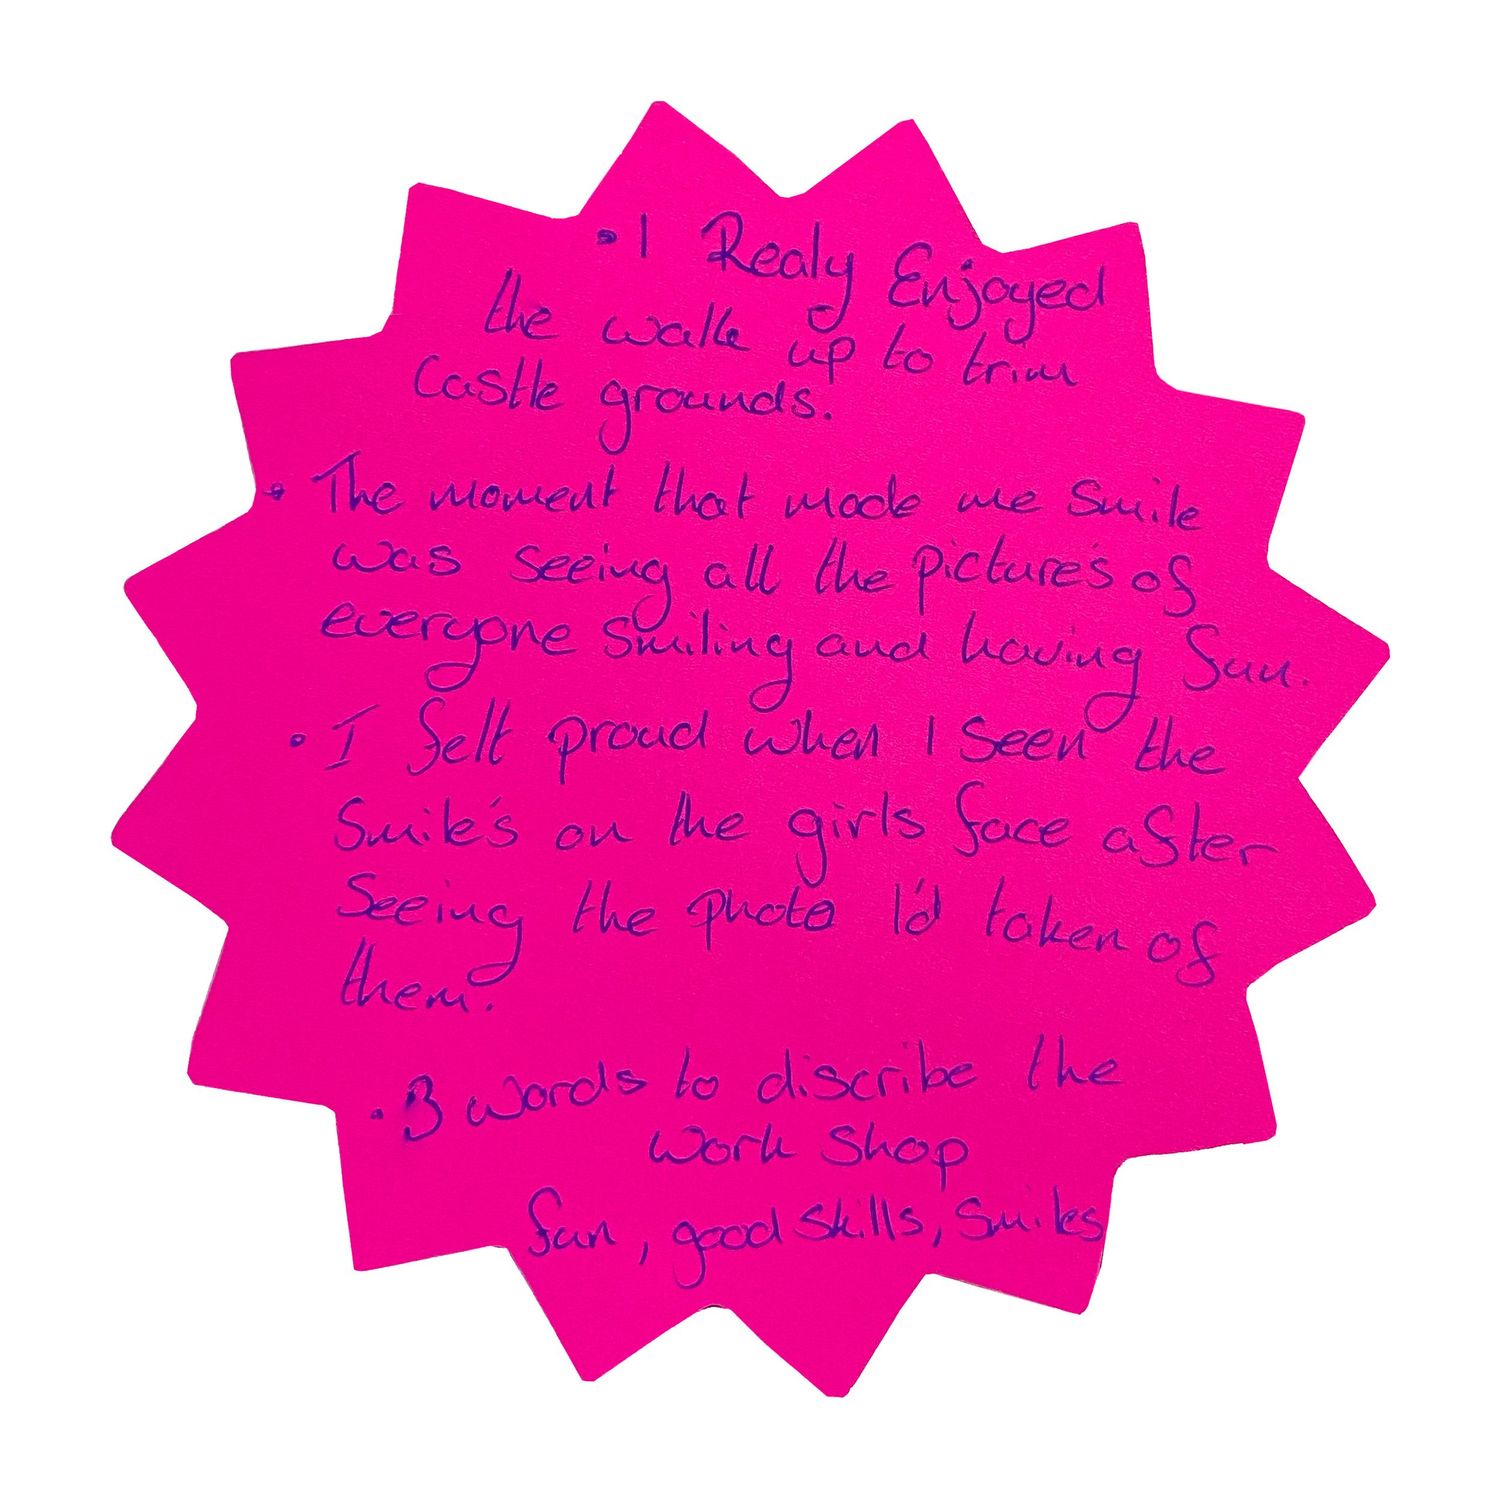 • I Realy Enjoyed
the walk up to trim
Castle grounds.
• The moment that made me smile
was seeing all the picture's of
everyone smiling and having fun.
• I felt proud when I seen the
Smile's on the girls face after
Seeing the photo I'd taken of
them.
• 3 words to discribe the
work shop
fun, good skills, smiles